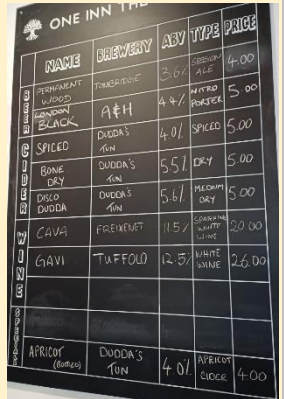 ONE INN THE
NAME BREWERY ABV TYPE PRICE
BEER
PERMANENT WOOD TONBRIDGE 3.6% SESSION ALE 4.00
LONDON BLACK A&H 4.4% NITRO PORTER 5.00
CIDER
SPICED DUDDA'S TUN 4.0% SPICED 5.00
BONE DRY DUDDA'S TUN 5.5% DRY 5.00
DISCO DUDDA DUDDA'S TUN 5.6% MEDIUM DRY 5.00
WINE
CAVA FREIXENET 11.5% SPARKLING WHITE WINE 20.00
GAVI TUFFOLO 12.5% WHITE WINE 26.00
SPECIALS
APRICOT (BOTTLED) DUDDA'S TUN 4.0% APRICOT CIDER 4.00